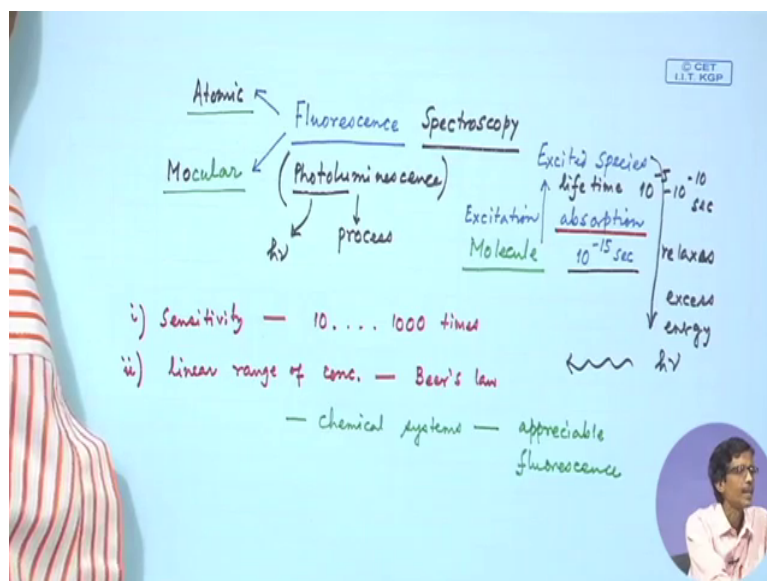 © CET
I.I.T. KGP
Atomic
Fluorescence Spectroscopy
Mocular
(Photoluminescence)
hν
process
Excited Species
life time 10⁻⁵-10⁻¹⁰ sec
Excitation
absorption
Molecule
10⁻¹⁵ sec
relaxes
excess
enrgy
hν
i) Sensitivity — 10....1000 times
ii) linear range of conc. — Beer's law
— chemical systems — appreciable
fluorescence